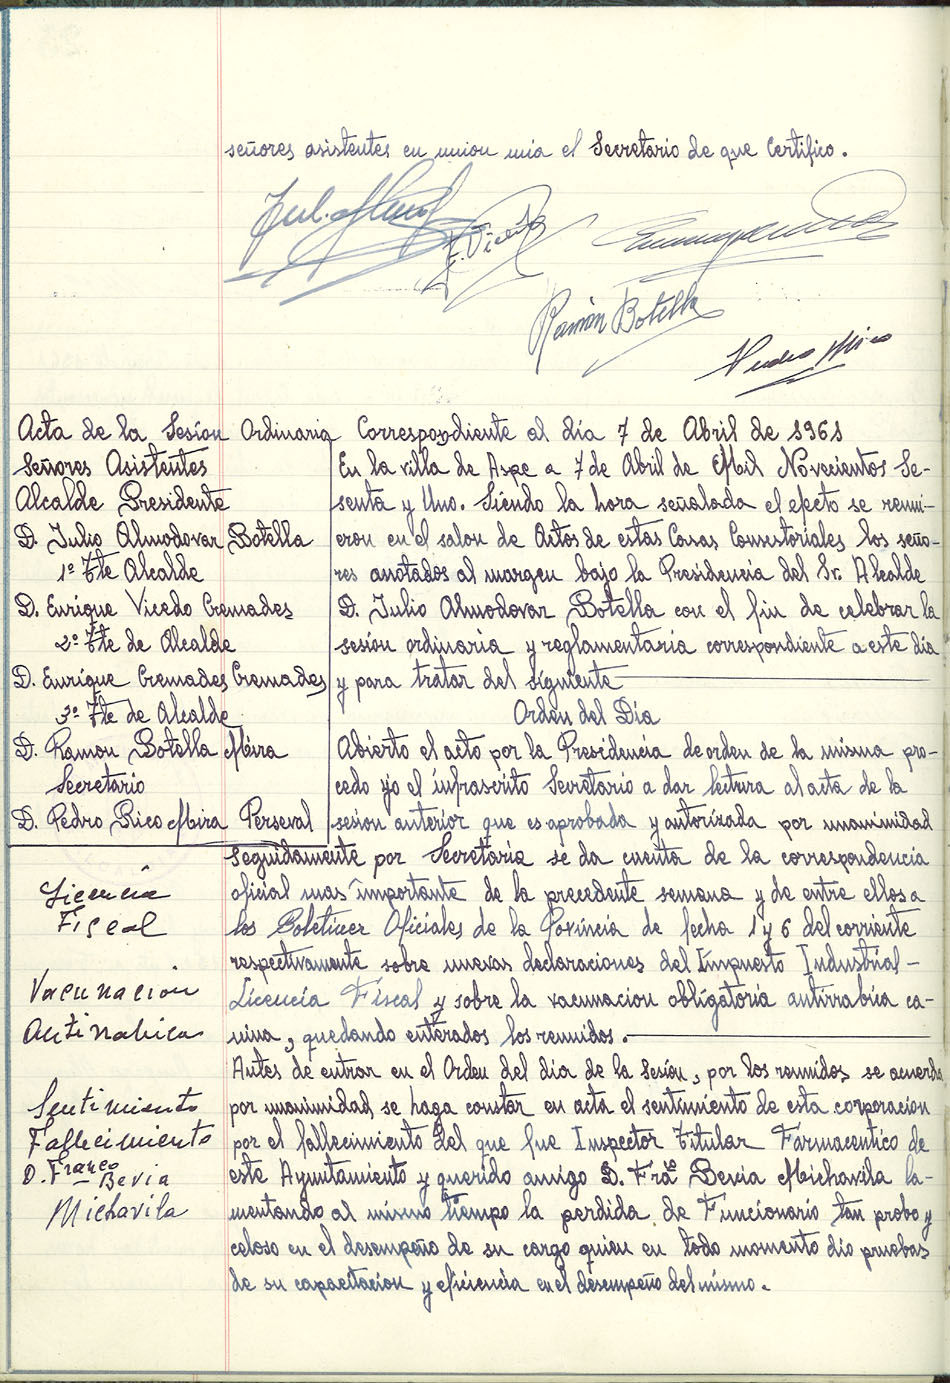 señores asistentes en union mia el Secretario de que Certifico.
Ramón Botella
Acta de la Sesión Ordinaria Correspondiente al día 7 de Abril de 1961
Señores Asistentes
Alcalde Presidente
D. Julio Almodovar Botella
1º Tte Alcalde
D. Enrique Vicedo Cremades
2º Tte de Alcalde
D. Enrique Cremades Cremades
3º Tte de Alcalde
D. Ramon Botella Mira
Secretario
D. Pedro Rico Mira Perseval
En la villa de Aspe a 7 de Abril de Mil Novecientos Se-
senta y Uno. Siendo la hora señalada el efecto se reuni-
eron en el salon de Actos de estas Casas Consistoriales los seño-
res anotados al margen bajo la Presidencia del Sr. Alcalde
D. Julio Almodovar Botella con el fin de celebrar la
sesión ordinaria y reglamentaria correspondiente a este día
y para tratar del siguiente
Orden del Día
Abierto el acto por la Presidencia de orden de la misma pro-
cedo yo el infrascrito Secretario a dar lectura al acta de la
sesion anterior que es aprobada y autorizada por unanimidad
Seguidamente por Secretaría se da cuenta de la correspondencia
oficial mas importante de la precedente semana y de entre ellos a
los Boletines Oficiales de la Provincia de fecha 1 y 6 del corriente
respectivamente sobre nuevas declaraciones del Impuesto Industrial-
Licencia Fiscal y sobre la vacunacion obligatoria antirrabica ca-
nina, quedando enterados los reunidos.
Licencia
Fiscal
Vacunación
Antirrabica
Antes de entrar en el Orden del dia de la Sesión, por los reunidos, se acuerda
por unanimidad, se haga constar en acta el sentimiento de esta corporación
por el fallecimiento del que fue Inspector Titular Farmaceutico de
este Ayuntamiento y querido amigo D. Frco Bevia Michavila la-
mentando al mismo tiempo la perdida de Funcionario tan probo y
celoso en el desempeño de su cargo quien en todo momento dio pruebas
de su capacitacion y eficiencia en el desempeño del mismo.
Sentimiento
Fallecimiento
D. Franco Bevia
Michavila